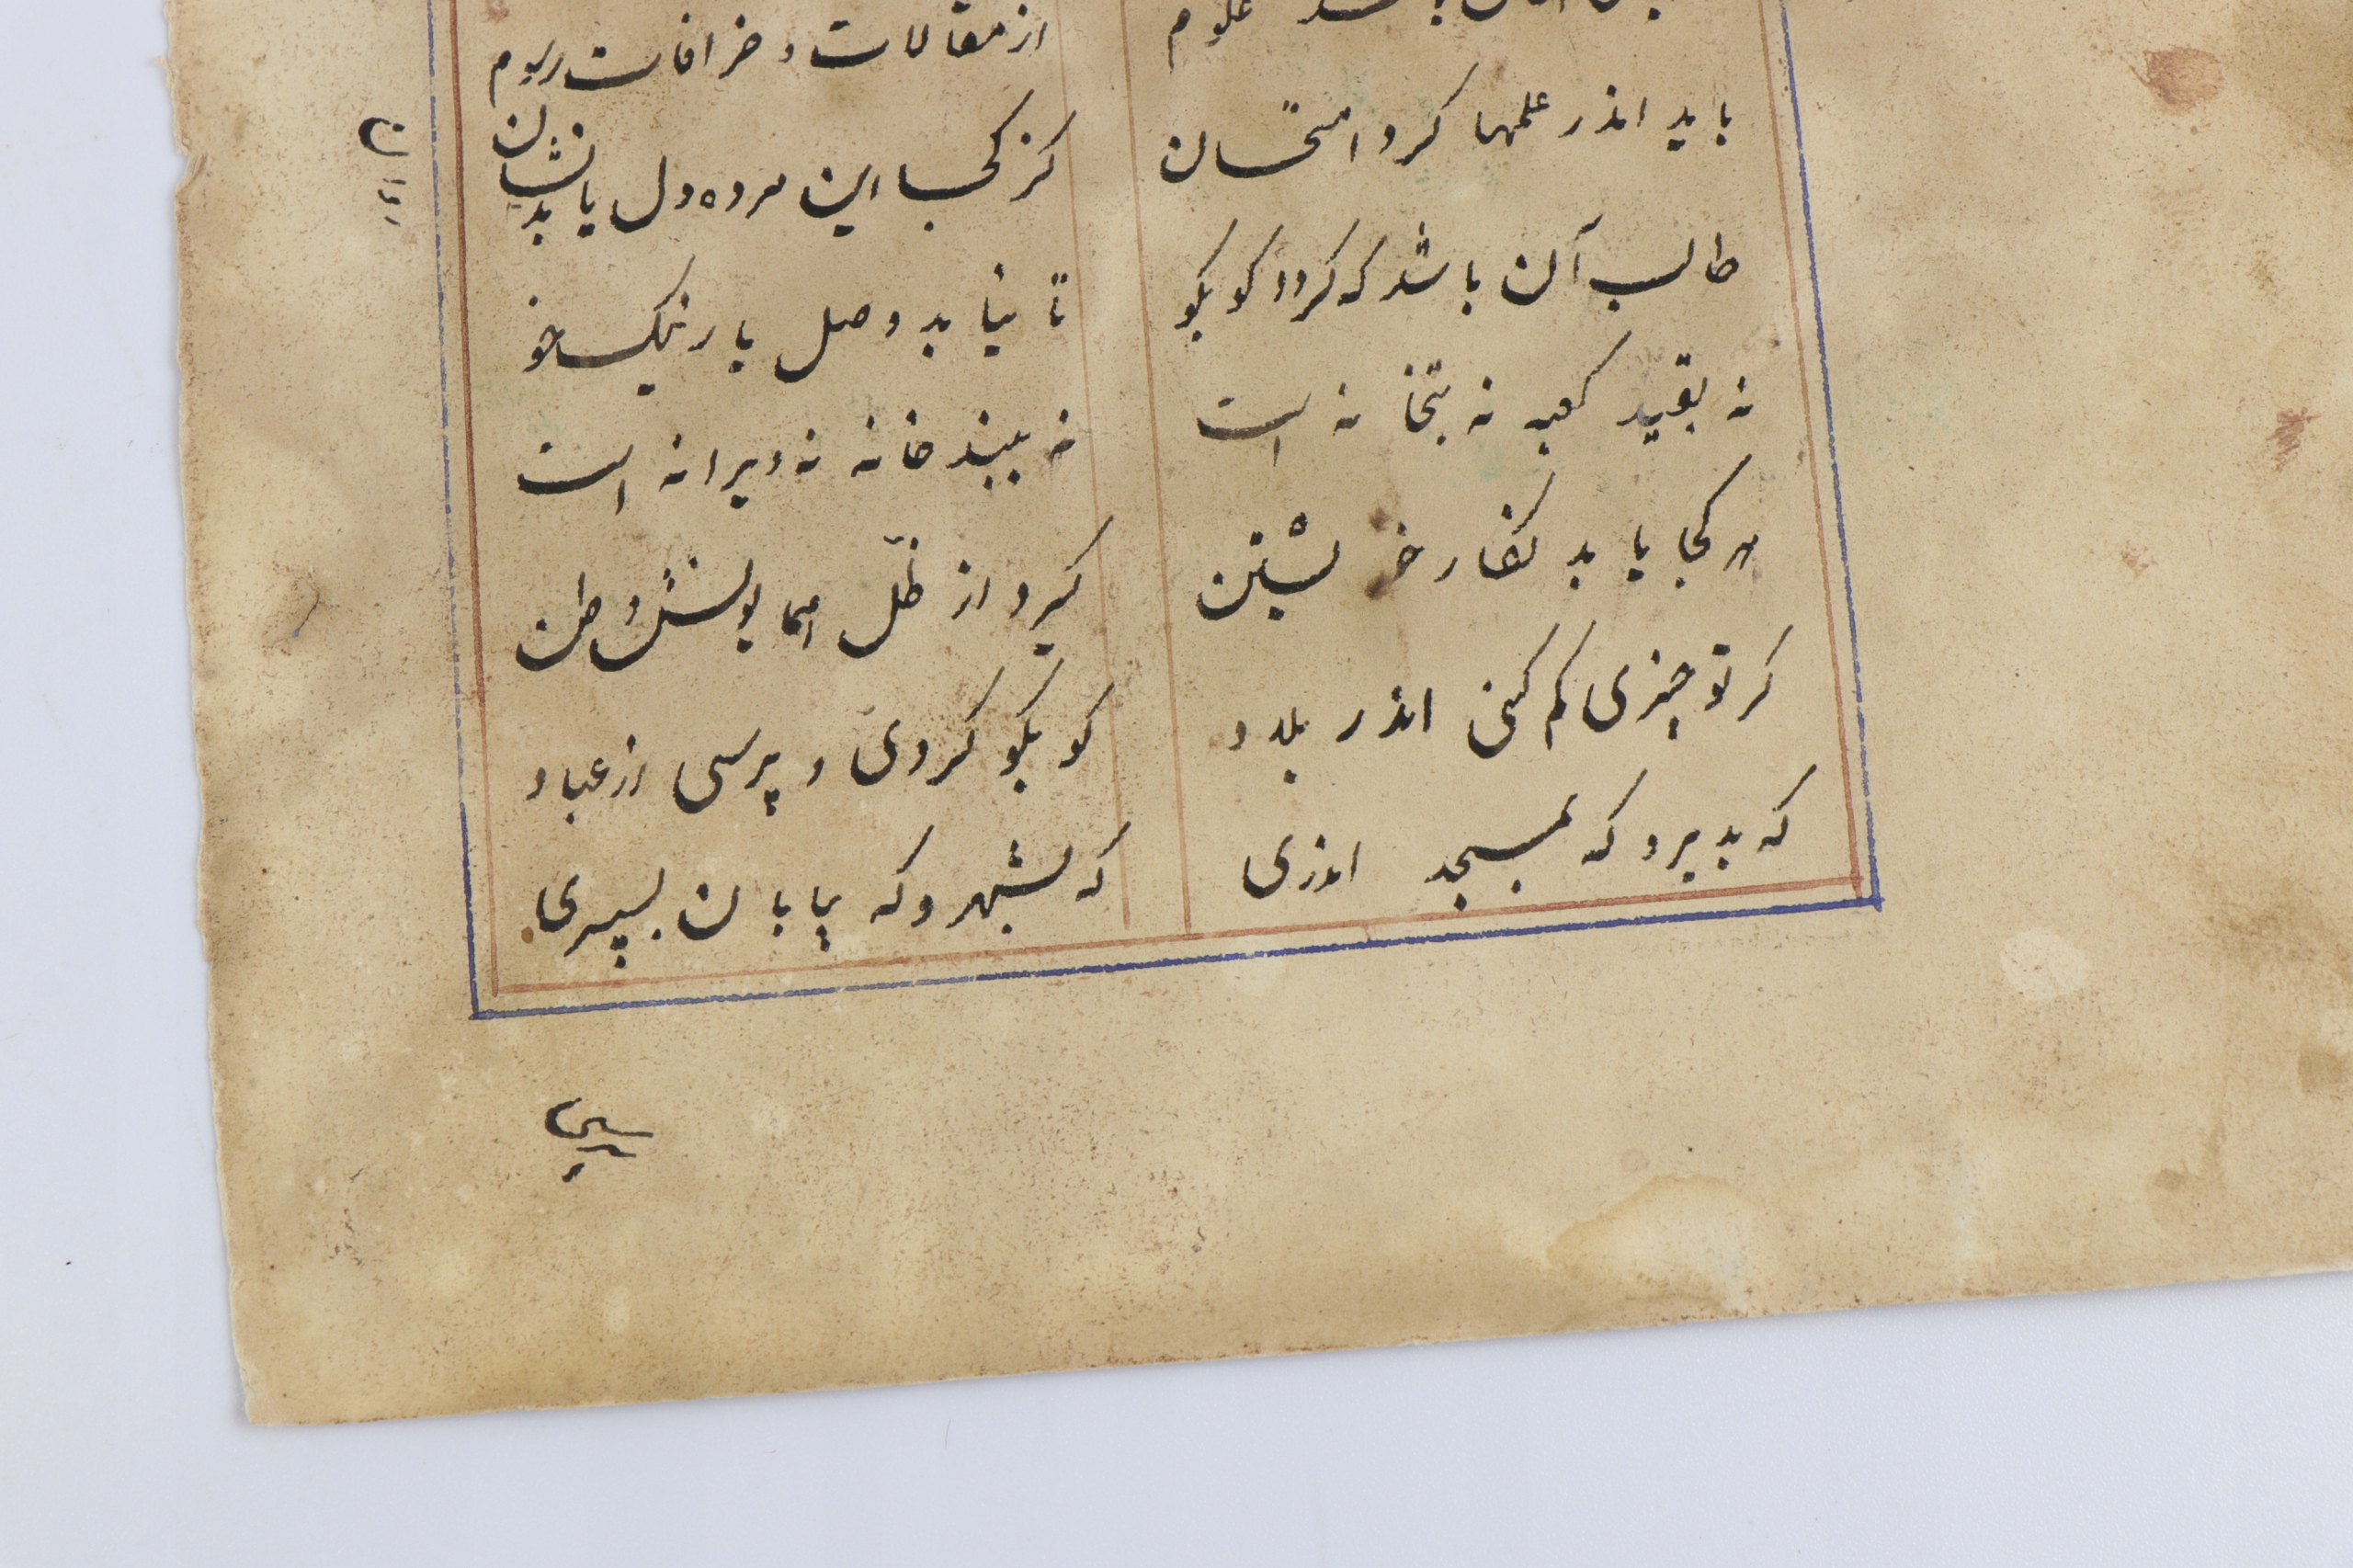 علوم
از مقالات و خرافات رسوم
باید اندر علمها کرد امتحان
کز کجا این مرده دل یابد نشان
طالب آن باشد که کردد کو بکو
تا نیابد وصل یار نیک خو
نه بقید کعبه نه بتخانه است
نه ببند خانه نه ویرانه است
هر کجا یابد نکار خویشتن
کیرد از ظلّ همایونش وطن
کر تو چیزی کم کنی اندر بلاد
کو بکو کردی و پرسی از عباد
که بدیر و که بمسجد اندری
که بشهر و که بیابان بسپری